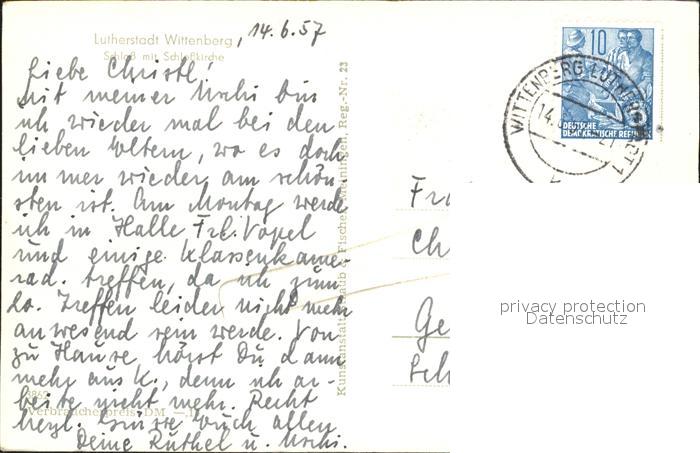 Lutherstadt Wittenberg, 14.6.57
Schloß mit Schloßkirche
Liebe Christl!
Mit meiner Uschi bin
ich wieder mal bei den
lieben Eltern, wo es doch
immer wieder am schön-
sten ist. Am Montag werde
ich in Halle Frl. Vogel
und einige Klassenkame-
rad. treffen, da ich zum
Treffen leider nicht mehr
anwesend sein werde. Von
zu Hause hörst Du dann
mehr aus K., denn ich ar-
beite nicht mehr. Recht
herzl. Grüsse Euch allen
Deine Ruthel u. Uschi.
Verbraucherpreis DM
Kunstanstalt Straub & Fischer, Meiningen, Reg.-Nr. 23
10
DEUTSCHE
DEMOKRATISCHE REPUBLIK
WITTENBERG LUTHERSTADT 1
14.
Fr
Ch
Ge
Sch
privacy protection
Datenschutz